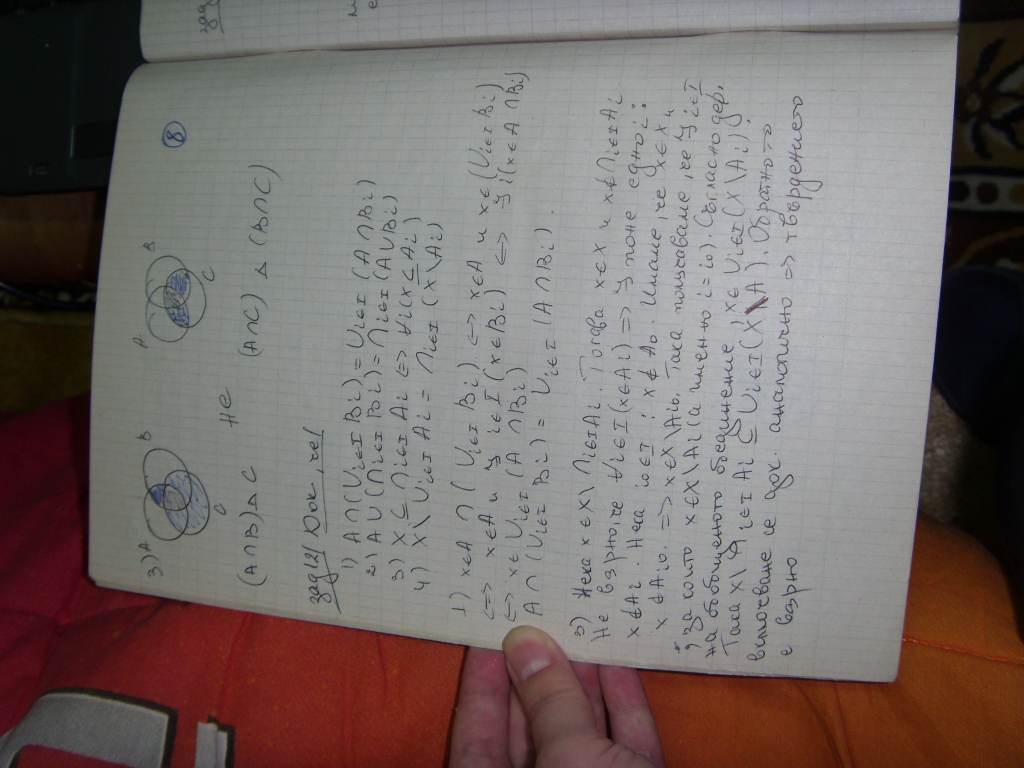 8
3) A B A B
C C
(A∩B)ΔC НЕ (A∩C) Δ (B∩C)
зад 12/ Док., че/
1) A∩(∪i∈I Bi) = ∪i∈I (A∩Bi)
2) A∪(∩i∈I Bi) = ∩i∈I (A∪Bi)
3) X ⊆ ∩i∈I Ai <=> ∀i(X ⊆ Ai)
4) X\∪i∈I Ai = ∩i∈I (X\Ai)
1) x∈A ∩ (∪i∈I Bi) <=> x∈A и x∈(∪i∈I Bi)
<=> x∈A и ∃ i∈I (x∈Bi) <=> ∃ i(x∈A∩Bi)
<=> x∈ ∪i∈I (A∩Bi)
A∩(∪i∈I Bi) = ∪i∈I (A∩Bi).
3) Нека x∈X\∩i∈I Ai. Тогава x∈X и x∉∩i∈I Ai
Не е вярно че ∀i∈I (x∈Ai) => ∃ поне едно i:
x∉Ai. Нека i0∈I : x∉A0. Имаме, че x∈X и
x∈Ai0. => x∈X\Ai0. Така получаваме, че ∃ i∈I
, за които x∈X\Ai (а именно i=i0). Съгласно деф.
на обобщеното обединение x∈∪i∈I (X\Ai).
Така X\ i∈I Ai ⊆ ∪i∈I (X\A). Обратното
включване се док. аналогично => твърдението
е вярно
зад